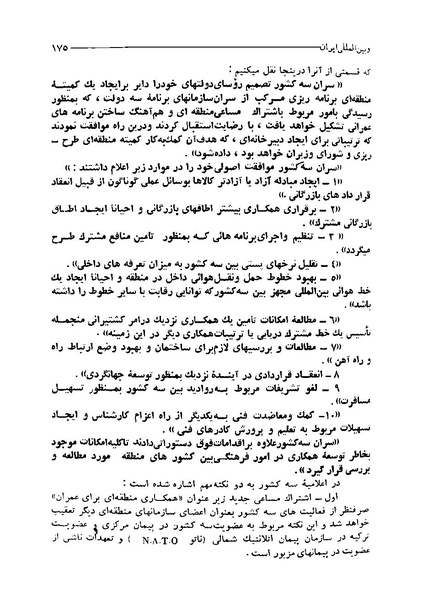 وبین‌الملل ایران ۱۷۵
که قسمتی از آنرا درینجا نقل میکنیم :
«سران سه کشور تصمیم رؤسای‌دولتهای خودرا دایر برایجاد یك کمیتهٔ
منطقه‌ای برنامه ریزی مرکب از سران‌سازمانهای برنامهٔ سه دولت ، که بمنظور
رسیدگی بامور مربوط باشتراك مساعی‌منطقه ای و هم‌آهنگ ساختن برنامه های
عمرانی تشکیل خواهد یافت ، با رضایت‌استقبال کردند ودرین راه موافقت نمودند
که ترتیباتی برای ایجاد دبیرخانه‌ای ، که هدف‌آن کمك‌به‌کار کمیته منطقه‌ای طرح ـ
ریزی و شورای وزیران خواهد بود ، داده‌شود»
«سران سه‌کشور موافقت اصولی‌خود را در موارد زیر اعلام داشتند : »
«۱ ـ ایجاد مبادله آزاد یا آزادتر کالاها بوسائل عملی گوناگون از قبیل انعقاد
قرار داد های بازرگانی .»
«۲ ـ برقراری همکاری بیشتر اطاقهای بازرگانی و احیاناً ایجاد اطاق
بازرگانی مشترك» .
« ۳ ـ تنظیم واجرای‌برنامه هائی که بمنظور تامین منافع مشترك طرح
میگردد» .
«٤ ـ تقلیل نرخهای پستی بین سه کشور به میزان تعرفه های داخلی» .
«٥ ـ بهبود خطوط حمل ونقل‌هوائی داخل در منطقه و احیاناً ایجاد یك
خط هوائی بین‌المللی مجهز بین سه‌کشورکه توانایی رقابت با سایر خطوط را داشته
باشد» .
«٦ ـ مطالعهٔ امکانات تأمین یك همکاری نزدیك درامر کشتیرانی منجمله
تأسیس یك خط مشترك دریایی یا ترتیبات‌همکاری دیگر در این زمینه» .
«۷ ـ مطالعات و بررسیهای لازم‌برای ساختمان و بهبود وضع ارتباط راه
و راه آهن » .
۸ ـ انعقاد قراردادی در آیندهٔ نزدیك بمنظور توسعهٔ جهانگردی» .
۹ ـ لغو تشریفات مربوط به‌روادید بین سه کشور بمنظور تسهیل
مسافرت» .
«۱۰ـ کمك ومعاضدت فنی به‌یکدیگر از راه اعزام کارشناس و ایجاد
تسهیلات مربوط به تعلیم و پرورش کادرهای فنی » .
«سران سه‌کشورعلاوه براقدامات‌فوق دستوراتی‌دادند تاکلیه‌امکانات موجود
بخاطر توسعهٔ همکاری در امور فرهنگی‌بین کشور های منطقه مورد مطالعه و
بررسی قرار گیرد» .
در اعلامیهٔ سه کشور به دو نکته‌مهم اشاره شده است :
اول ـ اشتراك مساعی جدید زیر عنوان «همکاری منطقه‌ای برای عمران»
صرفنظر از فعالیت های سه کشور بعنوان اعضای سازمانهای منطقه‌ای دیگر تعقیب
خواهد شد و این نکته مربوط به عضویت‌سه کشور در پیمان مرکزی و عضویت
ترکیه در سازمان پیمان اتلانتیك شمالی (ناتو N.A.T.O ) و تعهدات ناشی از
عضویت در پیمانهای مزبور است .